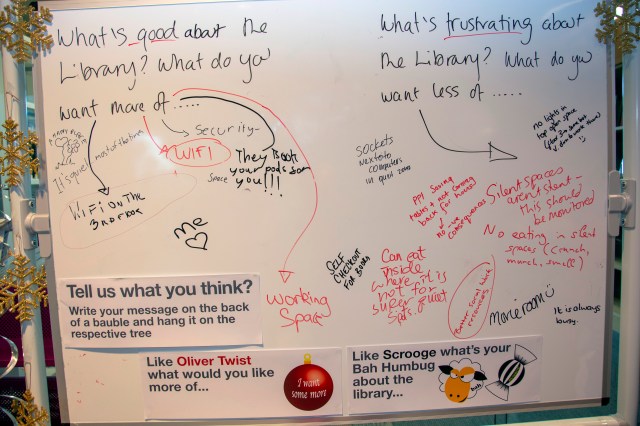 What's good about the
Library? What do you
want more of .....
What's frustrating about
the Library? What do you
want less of .....
It's quiet
most of the times
Security-
WIFI
They Book
your pods for
you!!!
Space
WiFi on the
me
working
Space
sockets
next to
computers
in quiet zones
no lights in
top open space
SELF
CHECKOUT
FOR BOOKS
ppl saving
tables + not coming
back for hours!
no -ve
consequences
Silent spaces
aren't silent -
this should
be monitored
No eating in silent
spaces (crunch,
munch, smell)
Can eat
inside
where it is
not for
super quiet
More room
It is always
busy.
Tell us what you think?
Write your message on the back
of a bauble and hang it on the
respective tree
Like Oliver Twist
what would you like
more of...
I want
some more
Like Scrooge what's your
Bah Humbug
about the
library...
Baah